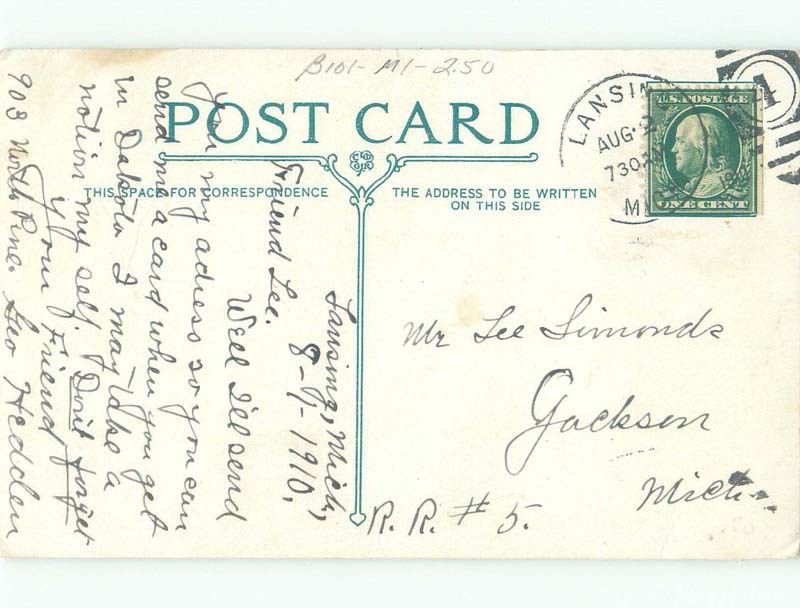 B101-M1-2.50
POST CARD
THIS SPACE FOR CORRESPONDENCE
THE ADDRESS TO BE WRITTEN
ON THIS SIDE
LANSING
AUG 2
730
MI
1
U.S. POSTAGE
ONE CENT
Lansing, Mich,
8-1-1910.
Friend Lee.
Well I'll send
You my adress so you can
send me a card when you get
in Dakota I may take a
notion my self. Don't forget
your Friend
Geo Hedden
903 North Pine
Mr Lee Simonds
Jackson
Mich.
R. R. # 5.